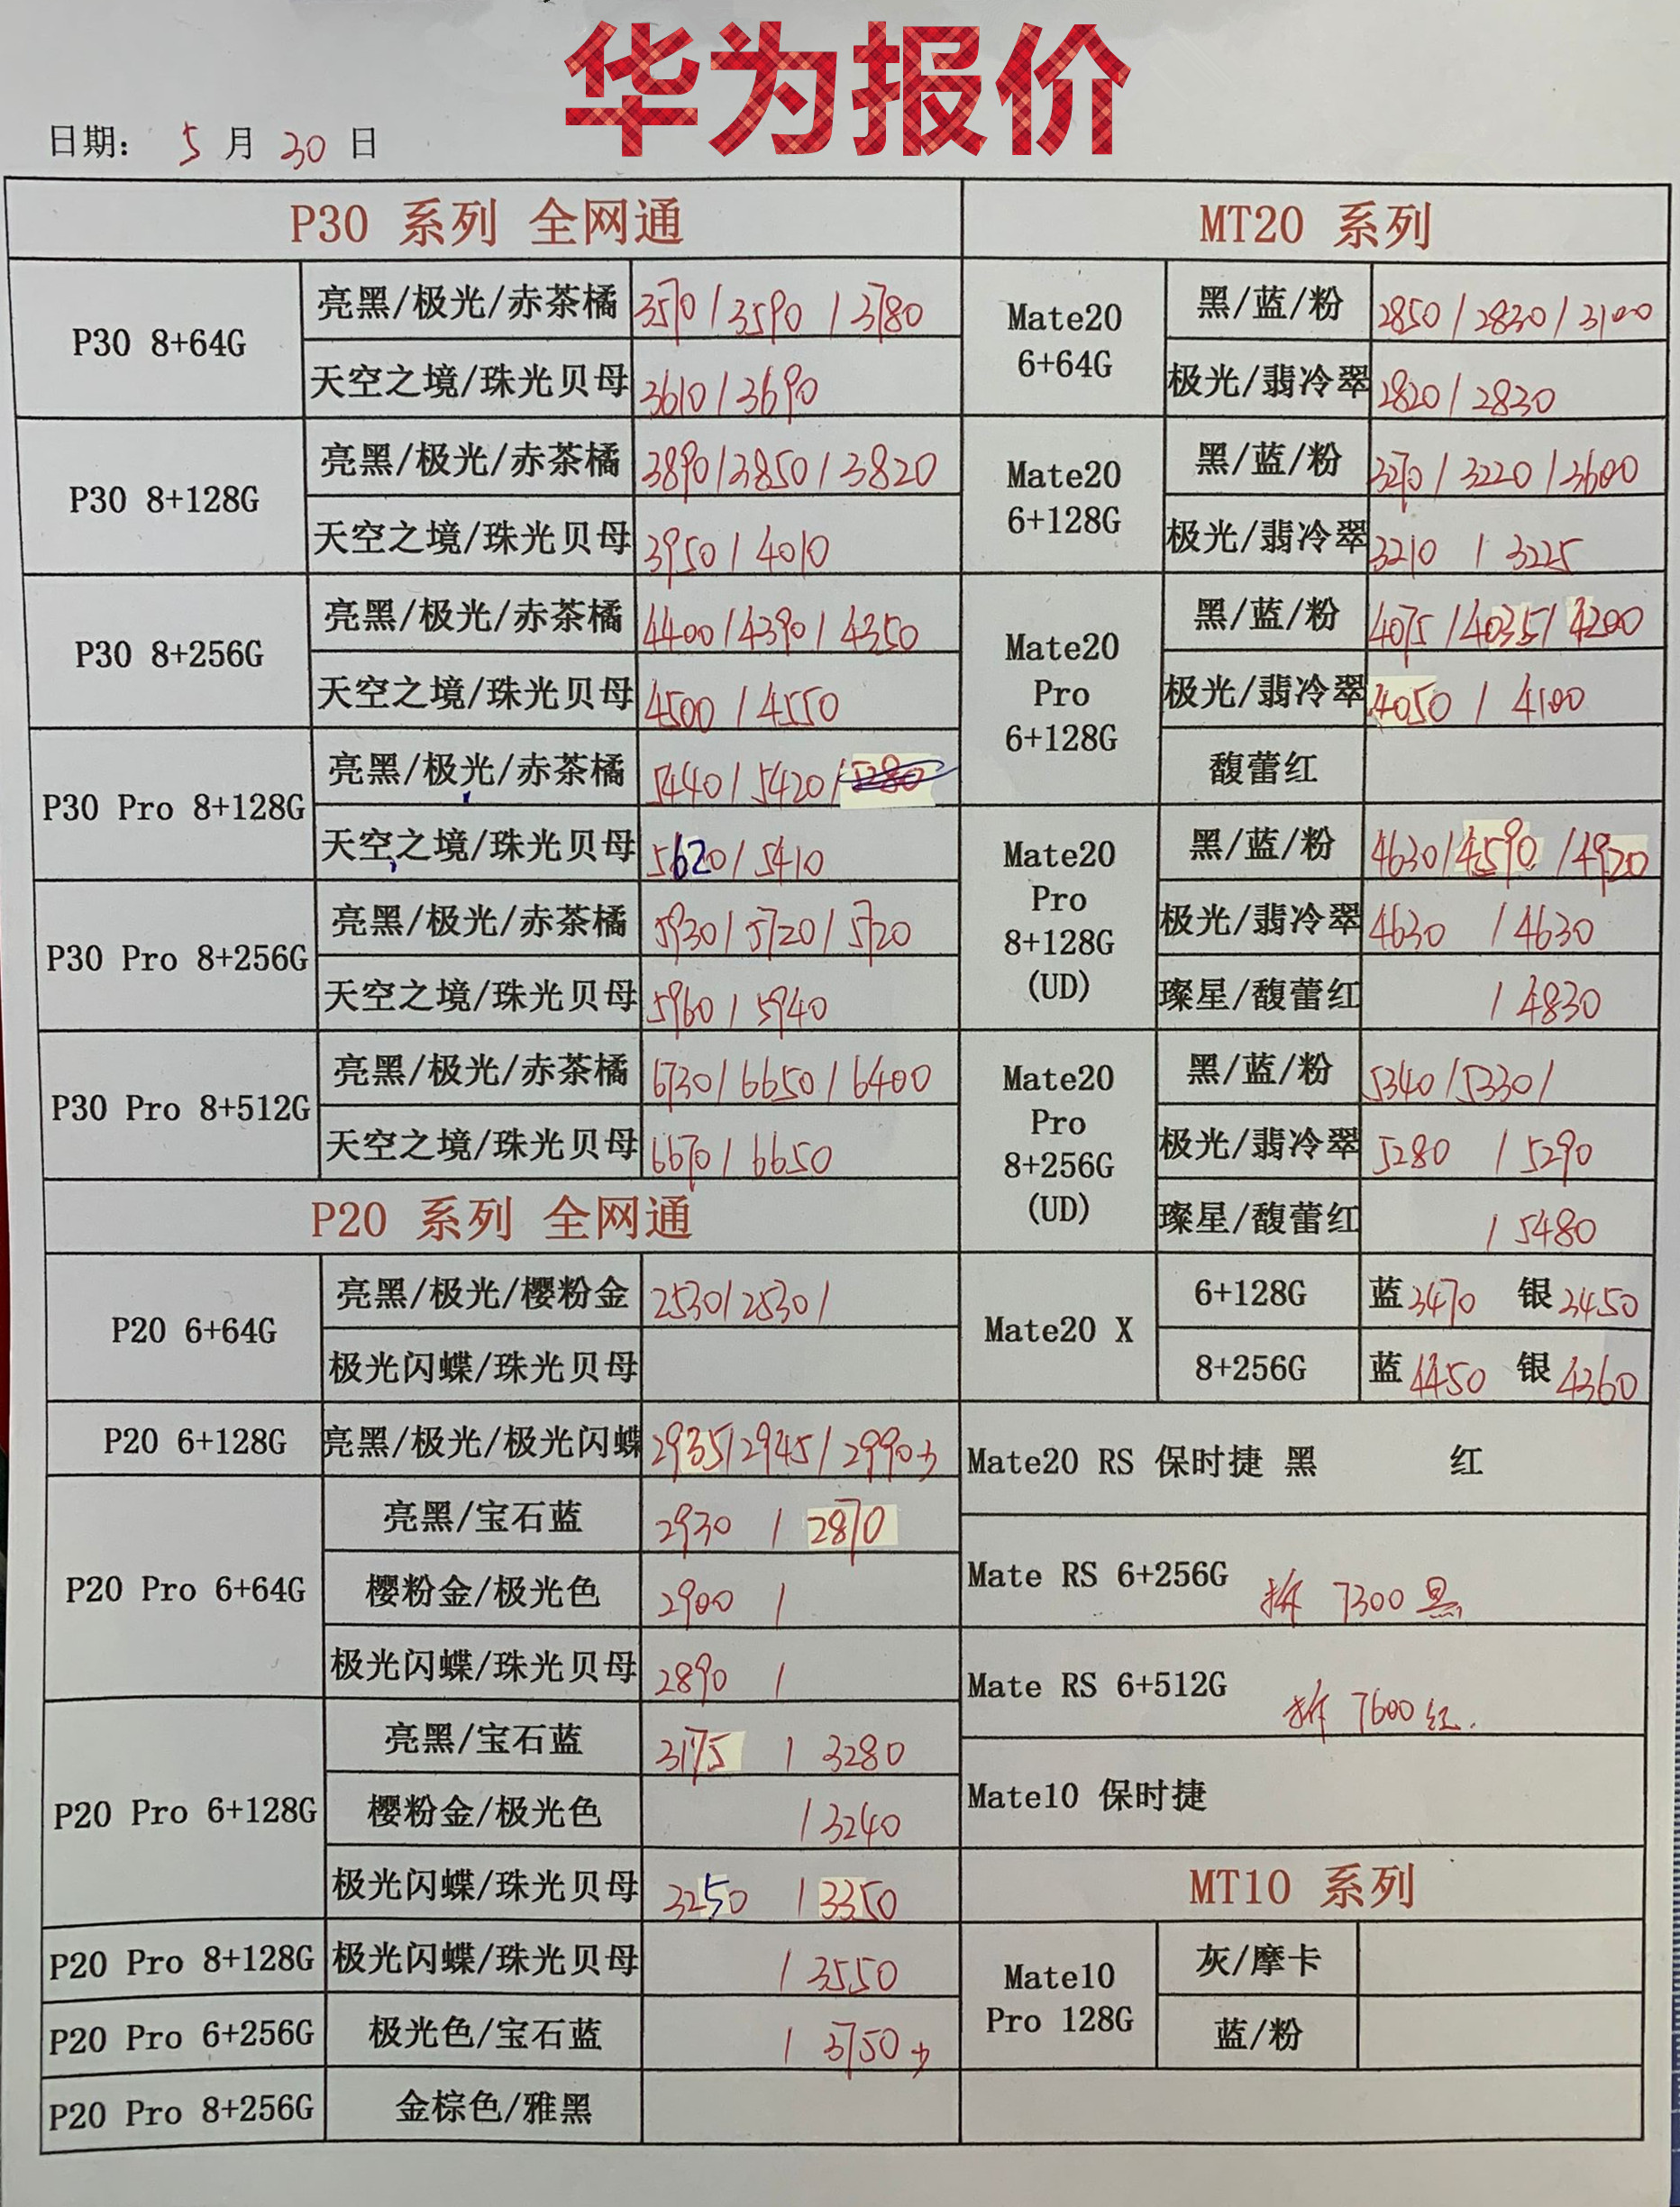 华为报价
日期: 5 月 30 日
P30 系列 全网通
P30 8+64G
亮黑/极光/赤茶橘 3570/3590/3780
天空之境/珠光贝母 3610/3690
P30 8+128G
亮黑/极光/赤茶橘 3890/3850/3820
天空之境/珠光贝母 3950/4010
P30 8+256G
亮黑/极光/赤茶橘 4400/4390/4350
天空之境/珠光贝母 4500/4550
P30 Pro 8+128G
亮黑/极光/赤茶橘 5440/5420/
天空之境/珠光贝母 5620/5410
P30 Pro 8+256G
亮黑/极光/赤茶橘 5930/5720/5720
天空之境/珠光贝母 5960/5940
P30 Pro 8+512G
亮黑/极光/赤茶橘 6730/6650/6400
天空之境/珠光贝母 6670/6650
P20 系列 全网通
P20 6+64G
亮黑/极光/樱粉金 2530/2530/
极光闪蝶/珠光贝母
P20 6+128G
亮黑/极光/极光闪蝶 2935/2945/2990
P20 Pro 6+64G
亮黑/宝石蓝 2930 / 2870
樱粉金/极光色 2900 /
极光闪蝶/珠光贝母 2890 /
P20 Pro 6+128G
亮黑/宝石蓝 3175 / 3280
樱粉金/极光色 / 3240
极光闪蝶/珠光贝母 3250 / 3350
P20 Pro 8+128G
极光闪蝶/珠光贝母 / 3550
P20 Pro 6+256G
极光色/宝石蓝 / 3750
P20 Pro 8+256G
金棕色/雅黑
MT20 系列
Mate20
6+64G
黑/蓝/粉 2850/2830/3100
极光/翡冷翠 2820/2830
Mate20
6+128G
黑/蓝/粉 3270/3220/3600
极光/翡冷翠 3210 / 3225
Mate20
Pro
6+128G
黑/蓝/粉 4075/4035/4200
极光/翡冷翠 4050 / 4100
馥蕾红
Mate20
Pro
8+128G
(UD)
黑/蓝/粉 4630/4590/4920
极光/翡冷翠 4630 / 4630
璨星/馥蕾红 / 4830
Mate20
Pro
8+256G
(UD)
黑/蓝/粉 5340/5330/
极光/翡冷翠 5280 / 5290
璨星/馥蕾红 / 5480
Mate20 X
6+128G 蓝3470 银3450
8+256G 蓝4450 银4360
Mate20 RS 保时捷 黑 红
Mate RS 6+256G 拆 7300 黑
Mate RS 6+512G 拆 7600 红.
Mate10 保时捷
MT10 系列
Mate10
Pro 128G
灰/摩卡
蓝/粉